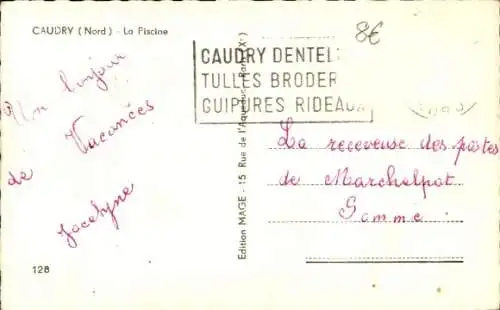 CAUDRY (Nord) - La Piscine
8€
CAUDRY DENTEL
TULLES BRODER
GUIPURES RIDEAUX
Un bonjour
de Vacances
Jocelyne
Edition MAGE - 15 Rue de l'Aqueduc - Paris (X°)
La receveuse des postes
de Marchelpot
Somme
128